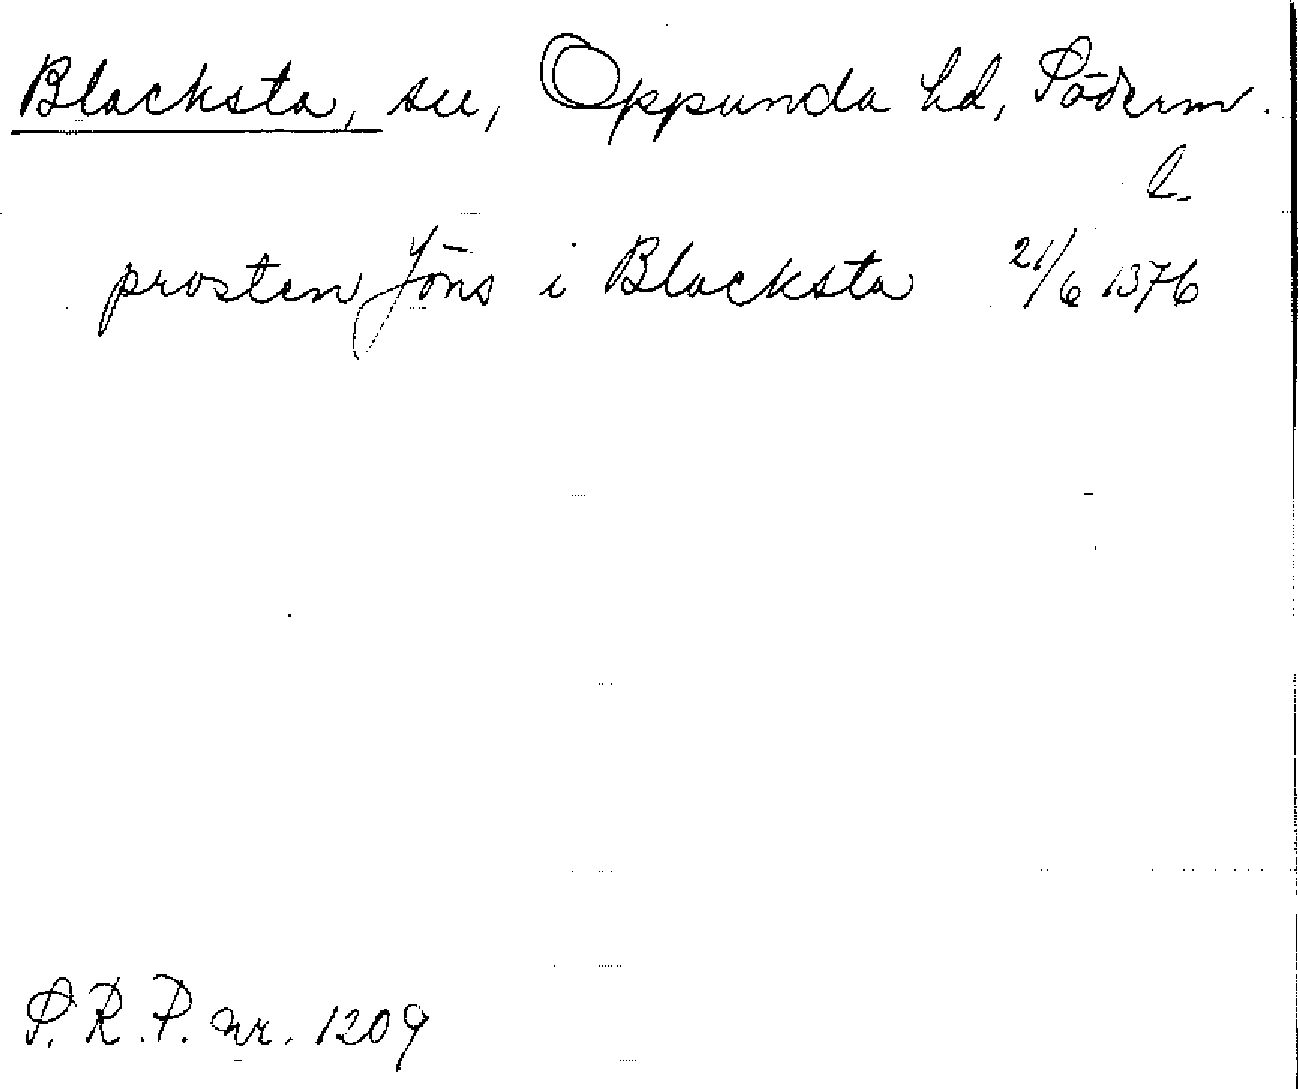 Blacksta, sn, Oppunda hd, Söderm.
l.
prosten Jöns i Blacksta 21/6 1376
S.R.P. nr. 1209